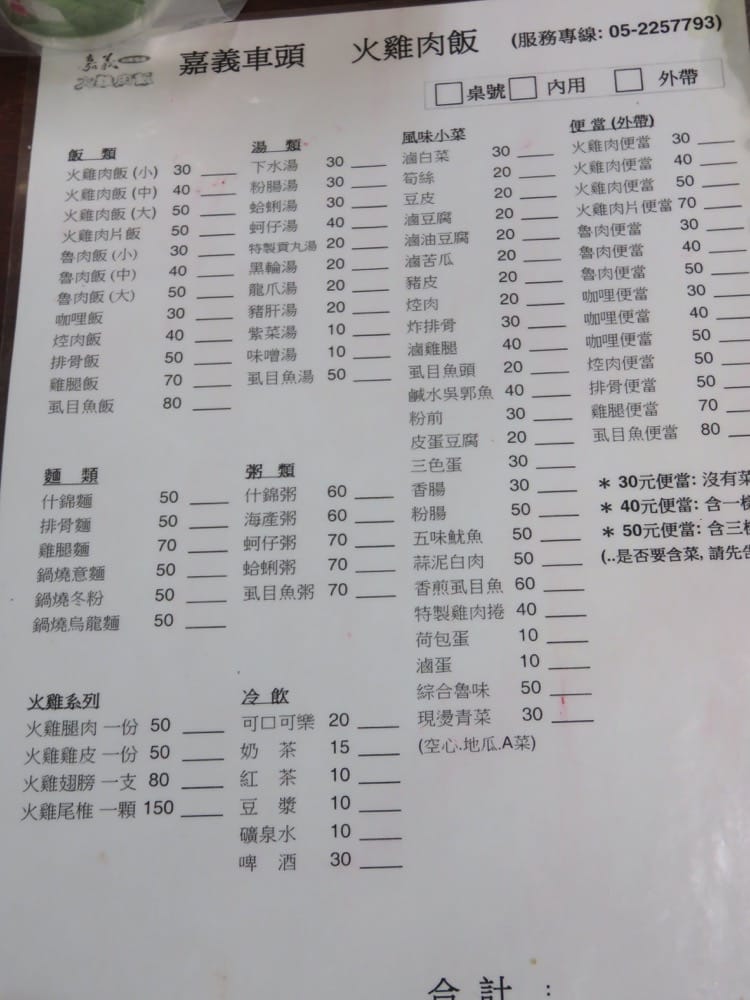 嘉義
火雞肉飯
嘉義車頭 火雞肉飯 (服務專線: 05-2257793)
桌號 內用 外帶
飯 類
火雞肉飯 (小) 30
火雞肉飯 (中) 40
火雞肉飯 (大) 50
火雞肉片飯 50
魯肉飯 (小) 30
魯肉飯 (中) 40
魯肉飯 (大) 50
咖哩飯 30
焢肉飯 40
排骨飯 50
雞腿飯 70
虱目魚飯 80
湯 類
下水湯 30
粉腸湯 30
蛤蜊湯 30
蚵仔湯 40
特製貢丸湯 20
黑輪湯 20
龍爪湯 20
豬肝湯 20
紫菜湯 10
味噌湯 10
虱目魚湯 50
風味小菜
滷白菜 30
筍絲 20
豆皮 20
滷豆腐 20
滷油豆腐 20
滷苦瓜 20
豬皮 20
焢肉 20
炸排骨 30
滷雞腿 40
虱目魚頭 20
鹹水吳郭魚 40
粉前 30
皮蛋豆腐 20
三色蛋 30
香腸 30
粉腸 50
五味魷魚 50
蒜泥白肉 50
香煎虱目魚 60
特製雞肉捲 40
荷包蛋 10
滷蛋 10
綜合魯味 50
現燙青菜 30
(空心.地瓜.A菜)
便 當 (外帶)
火雞肉便當 30
火雞肉便當 40
火雞肉便當 50
火雞肉片便當 70
魯肉便當 30
魯肉便當 40
魯肉便當 50
咖哩便當 30
咖哩便當 40
咖哩便當 50
焢肉便當 50
排骨便當 50
雞腿便當 70
虱目魚便當 80
＊ 30元便當: 沒有菜
＊ 40元便當: 含一
＊ 50元便當: 含三
(..是否要含菜, 請先告
麵 類
什錦麵 50
排骨麵 50
雞腿麵 70
鍋燒意麵 50
鍋燒冬粉 50
鍋燒烏龍麵 50
粥 類
什錦粥 60
海產粥 60
蚵仔粥 70
蛤蜊粥 70
虱目魚粥 70
火雞系列
火雞腿肉 一份 50
火雞雞皮 一份 50
火雞翅膀 一支 80
火雞尾椎 一顆 150
冷 飲
可口可樂 20
奶 茶 15
紅 茶 10
豆 漿 10
礦泉水 10
啤 酒 30
合 計 :